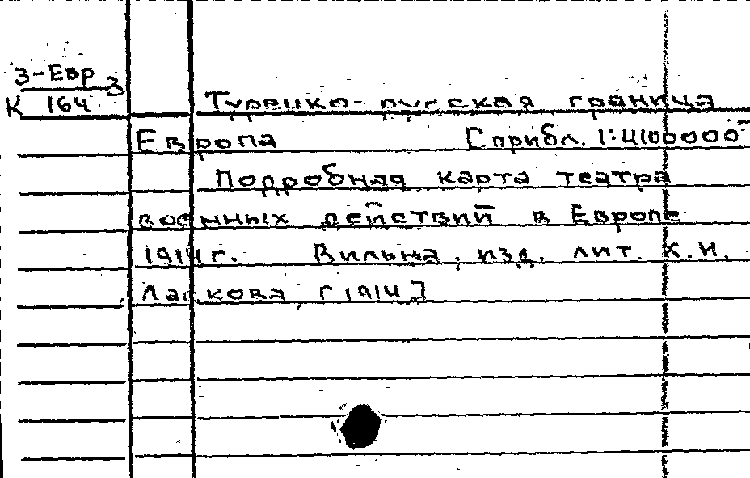 3-Евр 3
К 164
Турецко-русская граница
Европа [прибл. 1:4100000]
Подробная карта театра
военных действий в Европе
1914г. Вильна, изд. лит. К.И.
[1914]